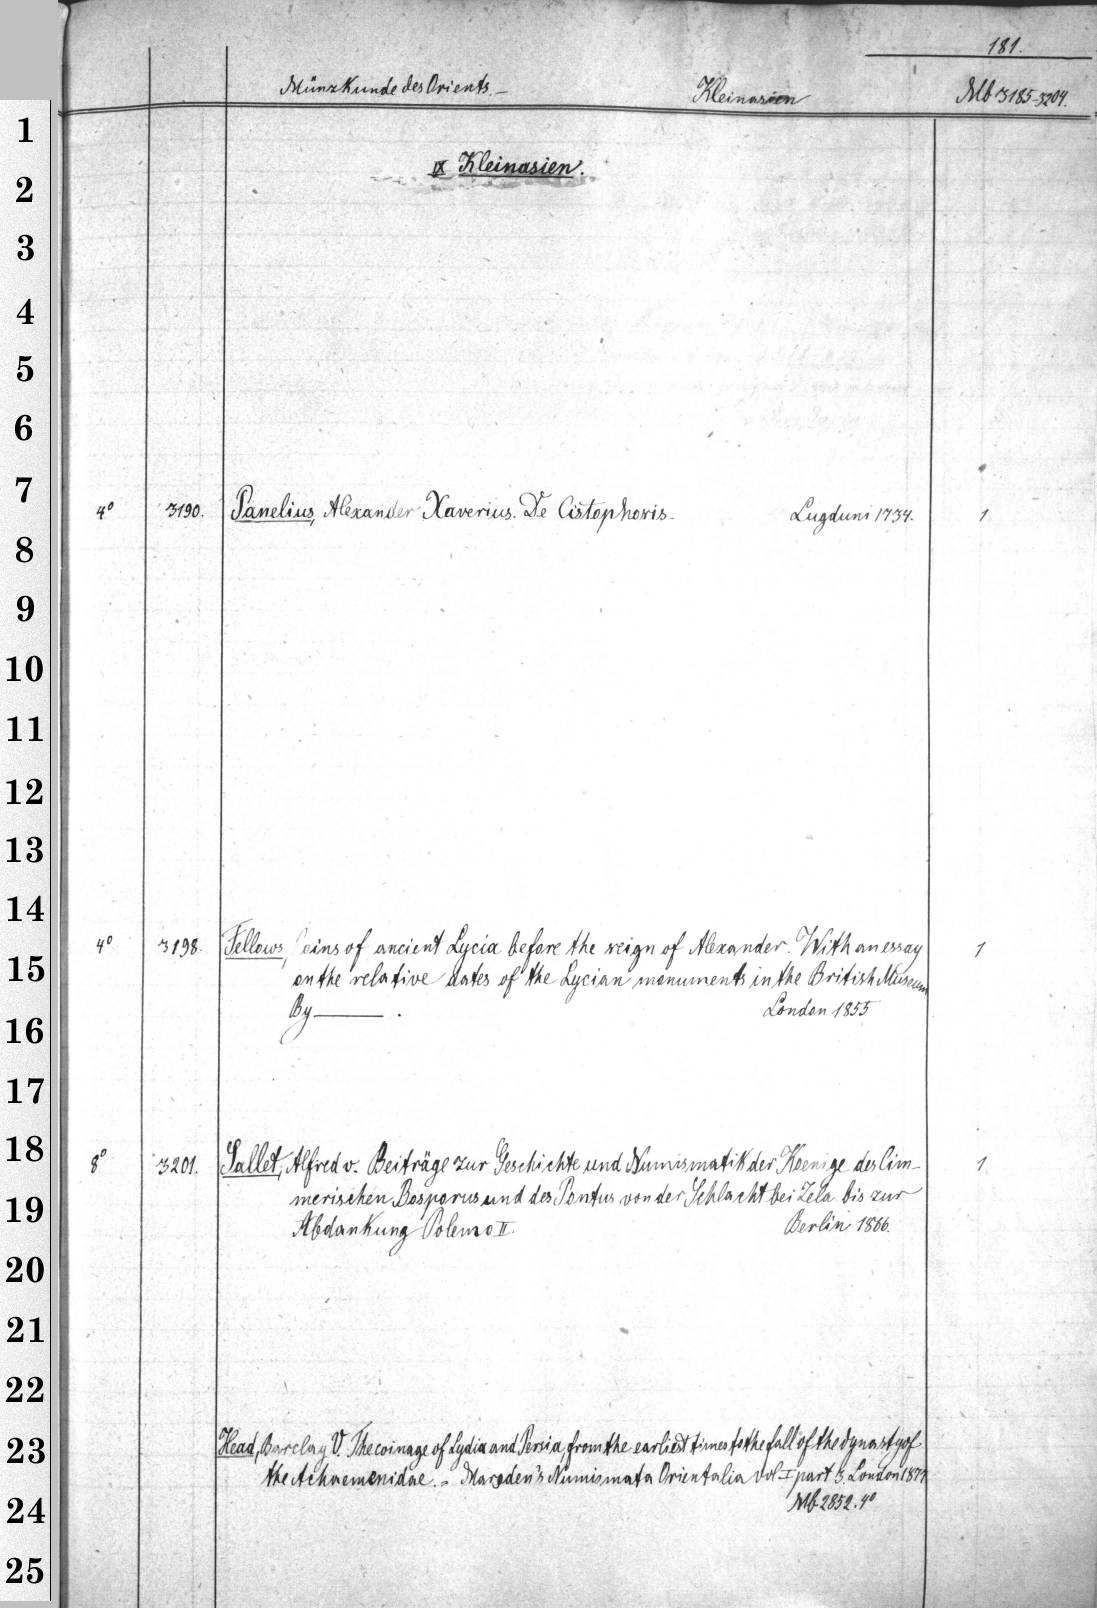 181.
Münzkunde des Orients. — Kleinasien Mb 3185-3204.
IX Kleinasien.
4° 3190. Panelius, Alexander Xaverius. De Cistophoris. Lugduni 1734. 1
4° 3198. Fellows, Coins of ancient Lycia before the reign of Alexander. With an essay 1
on the relative dates of the Lycian monuments in the British Museum
By ——— . London 1855
8° 3201. Sallet, Alfred v. Beiträge zur Geschichte und Numismatik der Koenige des Cim- 1
merischen Bosporus und des Pontus von der Schlacht bei Zela bis zur
Abdankung Polemo II. Berlin 1866.
Head, Barclay V. The coinage of Lydia and Persia, from the earliest times to the fall of the dynasty of
the Achaemenidae. - Marsden's Numismata Orientalia Vol I part 3. London 1877
Mb 2852. 4°
1
2
3
4
5
6
7
8
9
10
11
12
13
14
15
16
17
18
19
20
21
22
23
24
25